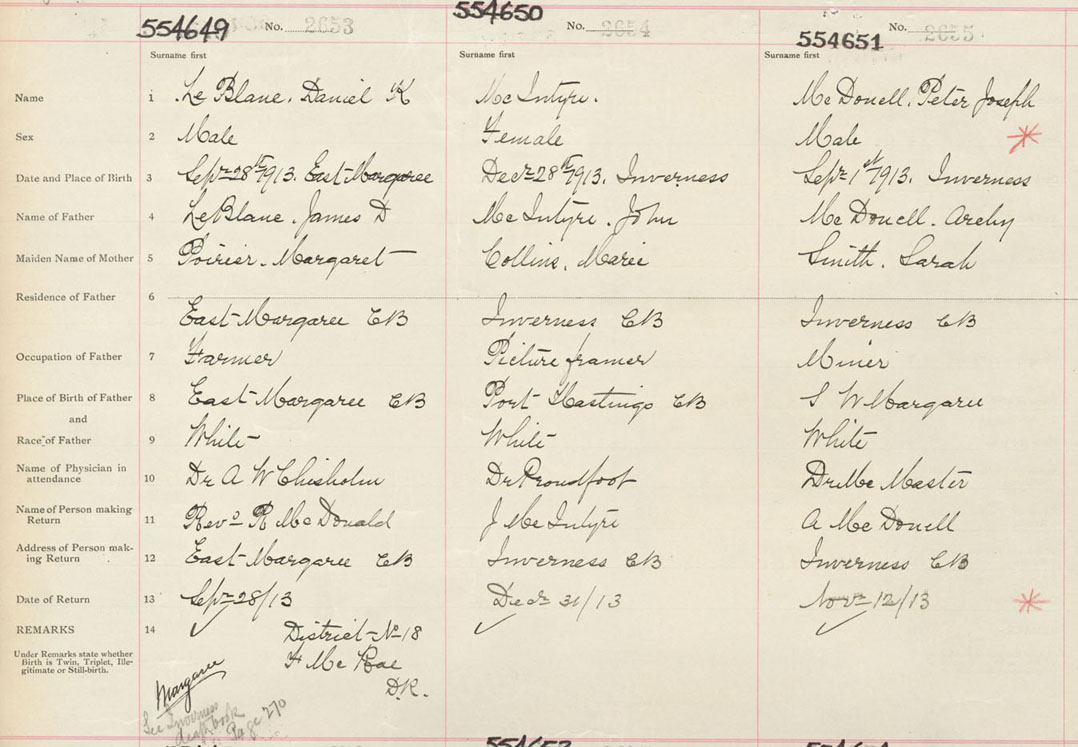 554649 No. 2653
554650 No. 2654
554651 No. 2655
Surname first Surname first Surname first
Name 1 Le Blanc. Daniel K Mc Intyre. Mc Donell. Peter Joseph
Sex 2 Male Female Male
Date and Place of Birth 3 Sepr 28th 1913. East Margaree Decr 28th 1913. Inverness Sepr 1st 1913. Inverness
Name of Father 4 LeBlanc. James D Mc Intyre. John Mc Donell. Archy
Maiden Name of Mother 5 Poirier. Margaret Collins. Marie Smith. Sarah
Residence of Father 6
East Margaree CB Inverness CB Inverness CB
Occupation of Father 7 Farmer Picture framer Miner
Place of Birth of Father 8 East Margaree CB Port Hastings CB S W Margaree
and
Race of Father 9 White White White
Name of Physician in
attendance 10 Dr A W Chisholm Dr Proudfoot Dr Mc Master
Name of Person making
Return 11 Revd R Mc Donald J Mc Intyre A Mc Donell
Address of Person mak-
ing Return 12 East Margaree CB Inverness CB Inverness CB
Date of Return 13 Sepr 28/13 Decr 31/13 Novr 12/13
REMARKS 14 District No 18
Under Remarks state whether
Birth is Twin, Triplet, Ille-
gitimate or Still-birth.
F Mc Rae
D.R.
Margaree
See Inverness
death book
Page 270